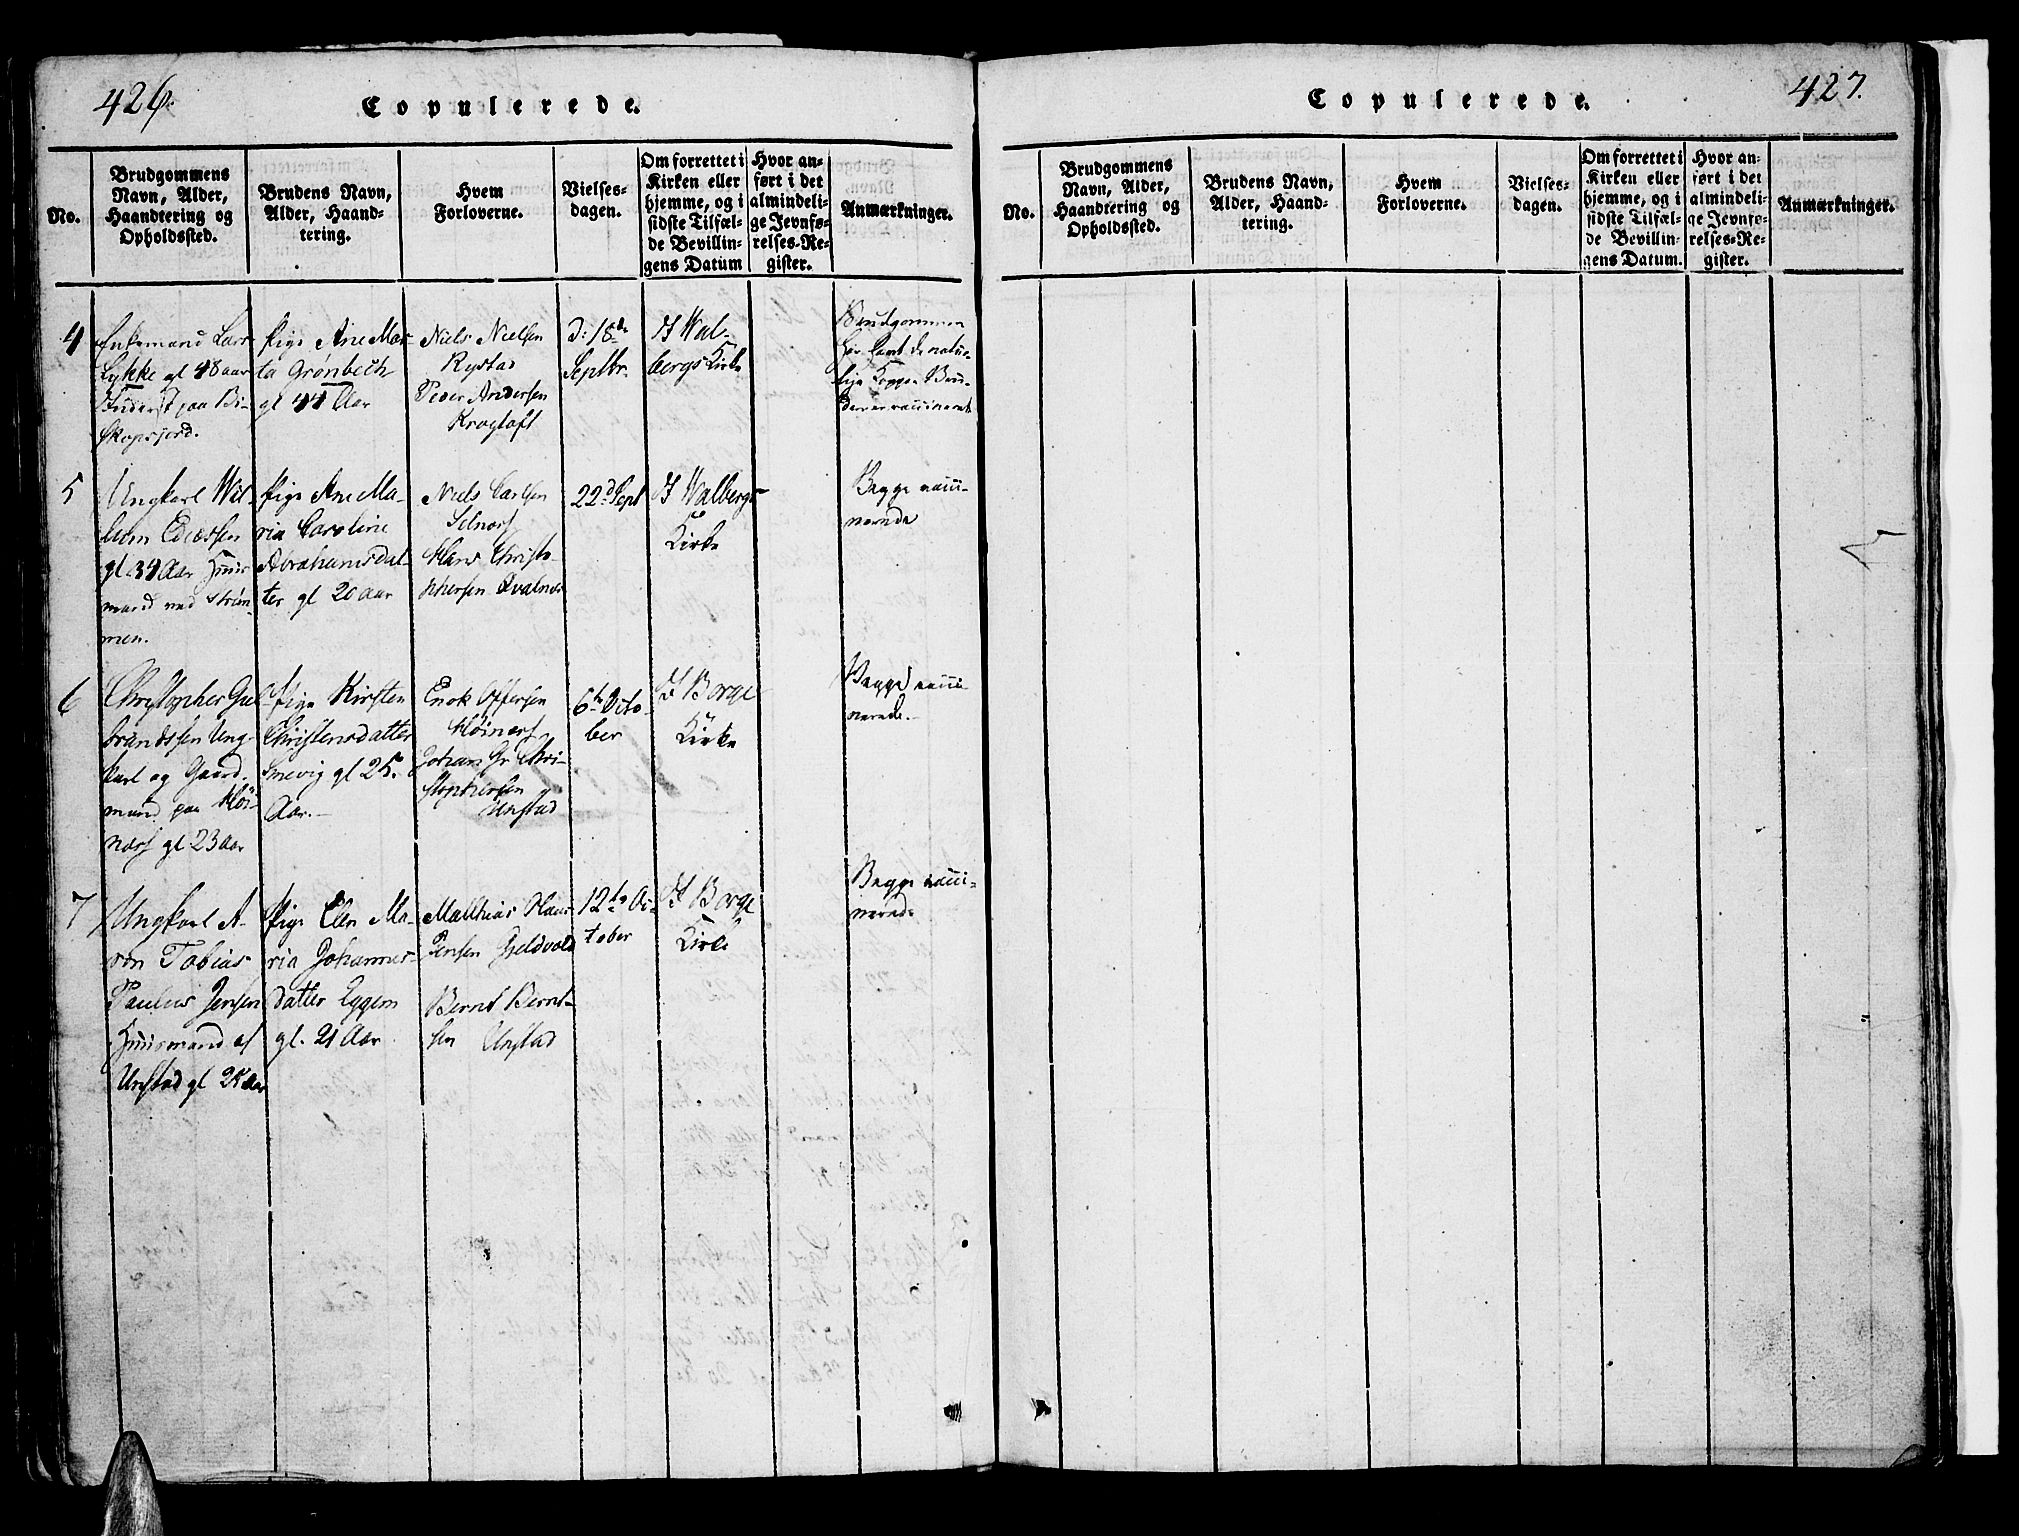 426.
Copulerede.
No.
Brudgommens
Navn, Alder,
Haandtering og
Opholdssted.
Brudens Navn,
Alder, Haand-
tering.
Hvem
Forloverne.
Vielses-
dagen.
Om forrettet i
Kirken eller
hjemme, og i
sidste Tilfæl-
de Bevillin-
gens Datum
Hvor an-
ført i det
almindeli-
ge Jevnfø-
relses-Re-
gister.
Anmærkninger.
4
Enkemand Lars
Lykke gl 48 aar
Inderst paa Bi-
skopsjord.
Pige Ane Mar-
ta Grønbech
gl 44 Aar
Niels Nielsen
Rystad
Peder Andersen
Krogtoft
d: 18de
Septbr.
I Wal-
bergs Kirke
Brudgommen
har havt de natur-
lige Kopper Bru-
den er vaccineret
5
Ungkarl Wil-
helm
gl. 34 Aar Huus
mand ved Strøm-
men.
Pige Ane Ma-
ria Caroline
Abrahamsdat-
ter gl 20 aar
Niels Carlsen
Hans Christo-
phersen Qvalnes
22d Sept
I Walbergs
Kirke
Begge vacci-
nerede
6
Christopher Gul
brandssen Ung-
karl og Gaard-
mand paa Høi-
næss gl 23 aar
Pige Kirsten
Christensdatter
Smevig gl 25
Aar.
Enok Offersen
Høinæss
Johan Gr Chri-
stophersen
Unstad
6te Octo-
ber
I Borge
Kirke
Begge vacci-
nerede.
7
Ungkarl A-
ron Tobias
Paulus Jensen
Huusmand af
Unstad gl 24 aar
Pige Elen Ma-
ria Johannes-
datter Eggem
gl. 21 Aar
Matthias Hans
Jensen Gieldvold
Bernt Bernt-
sen Unstad
12te Oc-
tober
I Borge
Kirke
Begge vacci-
nerede
427.
Copulerede.
No.
Brudgommens
Navn, Alder,
Haandtering og
Opholdssted.
Brudens Navn,
Alder, Haand-
tering.
Hvem
Forloverne.
Vielses-
dagen.
Om forrettet i
Kirken eller
hjemme, og i
sidste Tilfæl-
de Bevillin-
gens Datum.
Hvor an-
ført i det
almindeli-
ge Jevnfø-
relses-Re-
gister.
Anmærkninger.